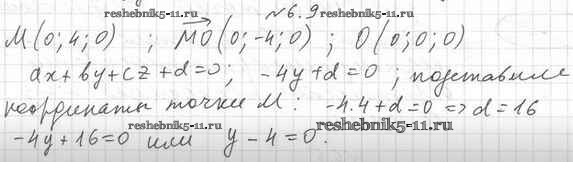 №6.9
reshebnik5-11.ru reshebnik5-11.ru
M(0;4;0) ; MO(0;-4;0) ; O(0;0;0)
ax+by+cz+d=0; -4y+d=0 ; подставим
reshebnik5-11.ru
координаты точки M: -4·4+d=0 => d=16
reshebnik5-11.ru reshebnik5-11.ru
-4y+16=0 или y-4=0.